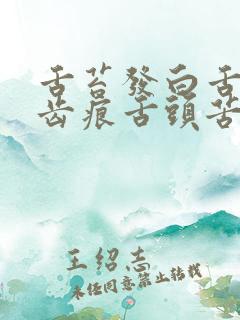 舌苔發白舌
齿痕舌頭苦
王绍志
未经同意禁止转载